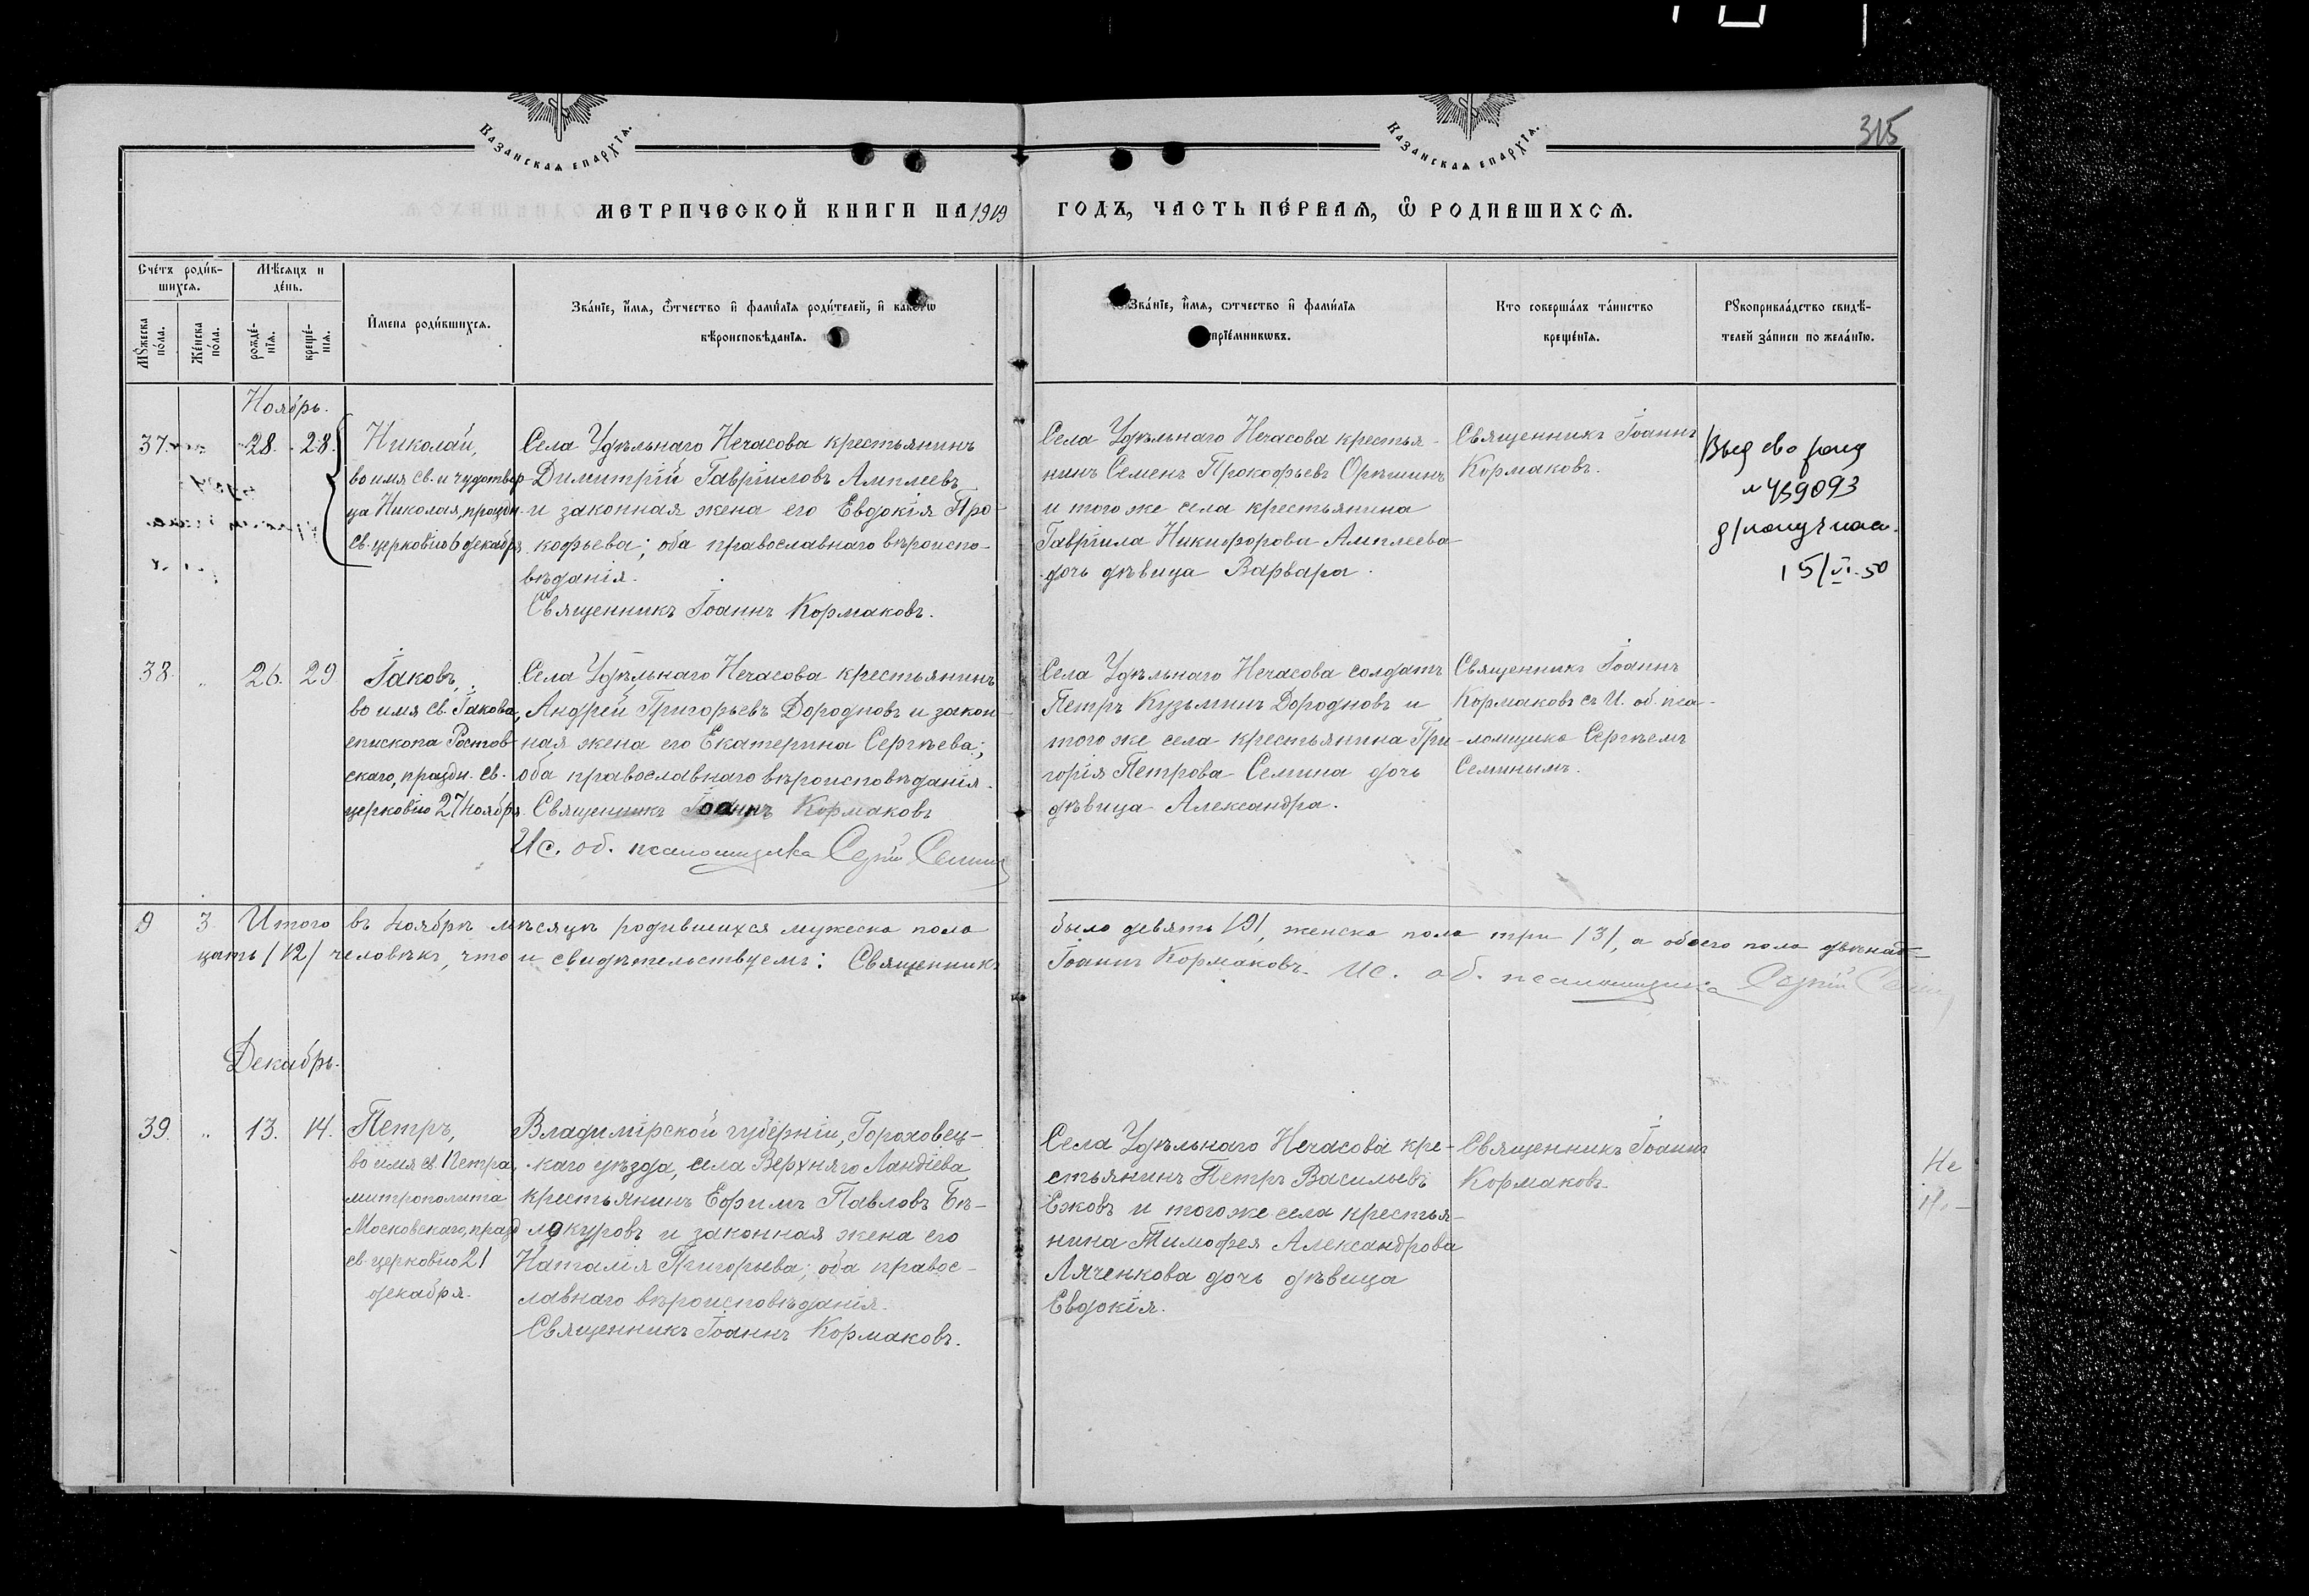 315
Казанская епархїѧ.
Казанская епархїѧ.
МЕТРИЧЕСКОЙ КНИГИ НА 1919
ГОДЪ, ЧАСТЬ ПЕ́РВАѦ, Ѽ РОДИВШИХСѦ.
Сче́тъ роди́в-
шихсѧ.
Мѣ́сяцъ и
де́нь.
Мꙋ́жеска
по́ла.
Же́нска
по́ла.
рожде́-
нїѧ.
креще́-
нїѧ.
И҆мена роди́вшихсѧ.
Зва́нїе, и҆́мѧ, ѻ҆́тчество и҆ фами́лїѧ роди́телей, и҆ како́гѡ
вѣроисповѣ́данїѧ.
Зва́нїе, и҆́мѧ, ѻтчество и҆ фами́лїѧ
прїе́мникѡвъ.
Кто соверша́лъ та́инство
креще́нїѧ.
Рꙋкоприкла́дство свидѣ́-
телей за́писи по жела́нїю.
Ноябрь.
37. 28. 28.
Николай,
во имя св. и чудотвор
ца Николая, праздн.
св. церковію 6 декабря
Села Удѣльнаго Нечасова крестьянинъ
Димитрій Гавріиловъ Амплеевъ
и законная жена его Евдокія Про-
кофьева; оба православнаго вѣроиспо-
вѣданія.
Священникъ Іоаннъ Кормаковъ.
Села Удѣльнаго Нечасова крестья-
нинъ Семенъ Прокофьевъ Орѣшинъ
и того же села крестьянина
Гавріила Никифорова Амплеева
дочь дѣвица Варвара.
Священникъ Іоаннъ
Кормаковъ.
Выд сво
№ 439093
15/VI-50
38. " 26. 29
Іаковъ,
во имя св. Іакова,
епископа Ростов-
скаго, праздн. св.
церковію 27 Ноября
Села Удѣльнаго Нечасова крестьянинъ
Андрей Григорьевъ Дородновъ и закон-
ная жена его Екатерина Сергѣева;
оба православнаго вѣроисповѣданія.
Священникъ Іоаннъ Кормаковъ
Ис. об. псаломщика Сергій Семинъ
Села Удѣльнаго Нечасова солдатъ
Петръ Кузьминъ Дородновъ и
того же села крестьянина Гри-
горія Петрова Семина дочь
дѣвица Александра.
Священникъ Іоаннъ
Кормаковъ съ И. об. пса-
ломщика Сергѣемъ
Семинымъ.
9 3 Итого въ Ноябрѣ мѣсяцѣ родившихся мужеска пола
было девять /9/, женска пола три /3/, а обоего пола двѣнад-
цать /12/ человѣкъ, что и свидѣтельствуемъ: Священникъ
Іоаннъ Кормаковъ. Ис. об. псаломщика Сергій Семинъ
Декабрь.
39. " 13. 14.
Петръ,
во имя св. Петра,
митрополита
Московскаго, празд
св. церковію 21
декабря.
Владимірской губерніи, Гороховец-
каго уѣзда, села Верхняго Ландіева
крестьянинъ Ефимъ Павловъ Бѣ-
локуровъ и законная жена его
Наталія Григорьева; оба правос-
лавнаго вѣроисповѣданія.
Священникъ Іоаннъ Кормаковъ.
Села Удѣльнаго Нечасова кре-
стьянинъ Петръ Васильевъ
Ежовъ и того же села крестья-
нина Тимофея Александрова
Ляченкова дочь дѣвица
Евдокія.
Священникъ Іоаннъ
Кормаковъ.
Не